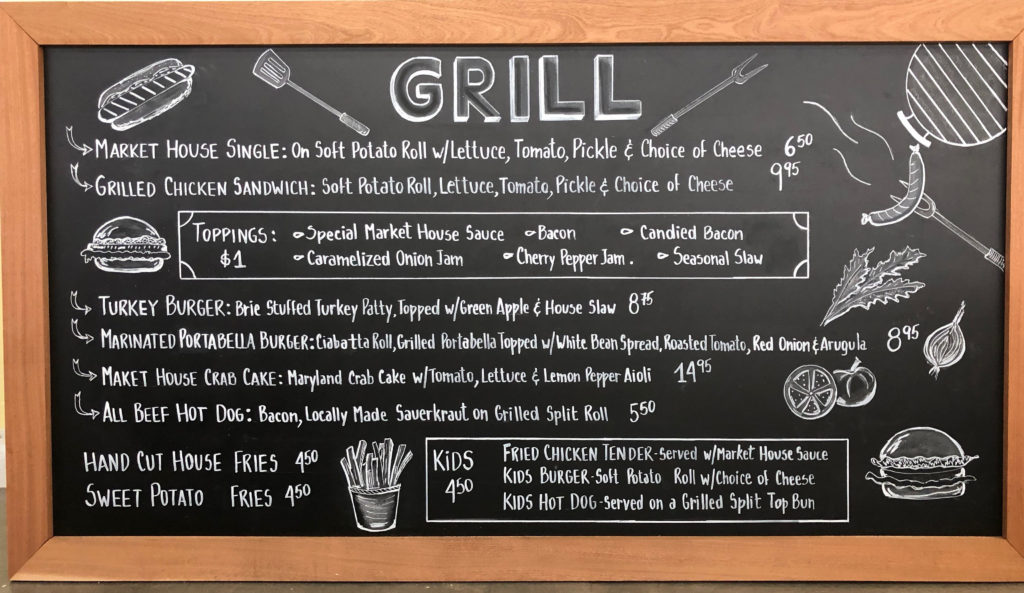 GRILL
MARKET HOUSE SINGLE: On Soft Potato Roll w/Lettuce, Tomato, Pickle & Choice of Cheese 6.50
GRILLED CHICKEN SANDWICH: Soft Potato Roll, Lettuce, Tomato, Pickle & Choice of Cheese 9.95
TOPPINGS: Special Market House Sauce Bacon Candied Bacon
$1 Caramelized Onion Jam Cherry Pepper Jam. Seasonal Slaw
TURKEY BURGER: Brie Stuffed Turkey Patty, Topped w/Green Apple & House Slaw 8.75
MARINATED PORTABELLA BURGER: Ciabatta Roll, Grilled Portabella Topped w/White Bean Spread, Roasted Tomato, Red Onion & Arugula 8.95
MAKET HOUSE CRAB CAKE: Maryland Crab Cake w/Tomato, Lettuce & Lemon Pepper Aioli 14.95
ALL BEEF HOT DOG: Bacon, Locally Made Sauerkraut on Grilled Split Roll 5.50
HAND CUT HOUSE FRIES 4.50
SWEET POTATO FRIES 4.50
KIDS
4.50
FRIED CHICKEN TENDER-served w/Market House Sauce
KIDS BURGER-Soft Potato Roll w/Choice of Cheese
KIDS HOT DOG-Served on a Grilled Split Top Bun